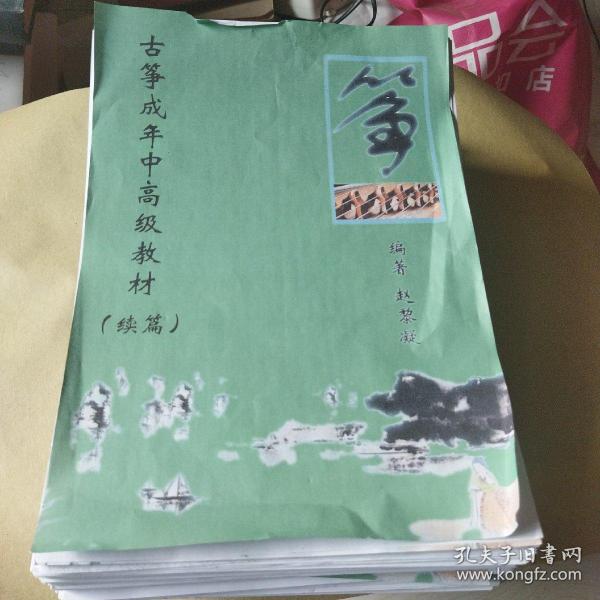 古筝成年中高级教材
（续篇）
筝
编著 赵黎凝
品会
店
孔夫子旧书网
www.kongfz.com